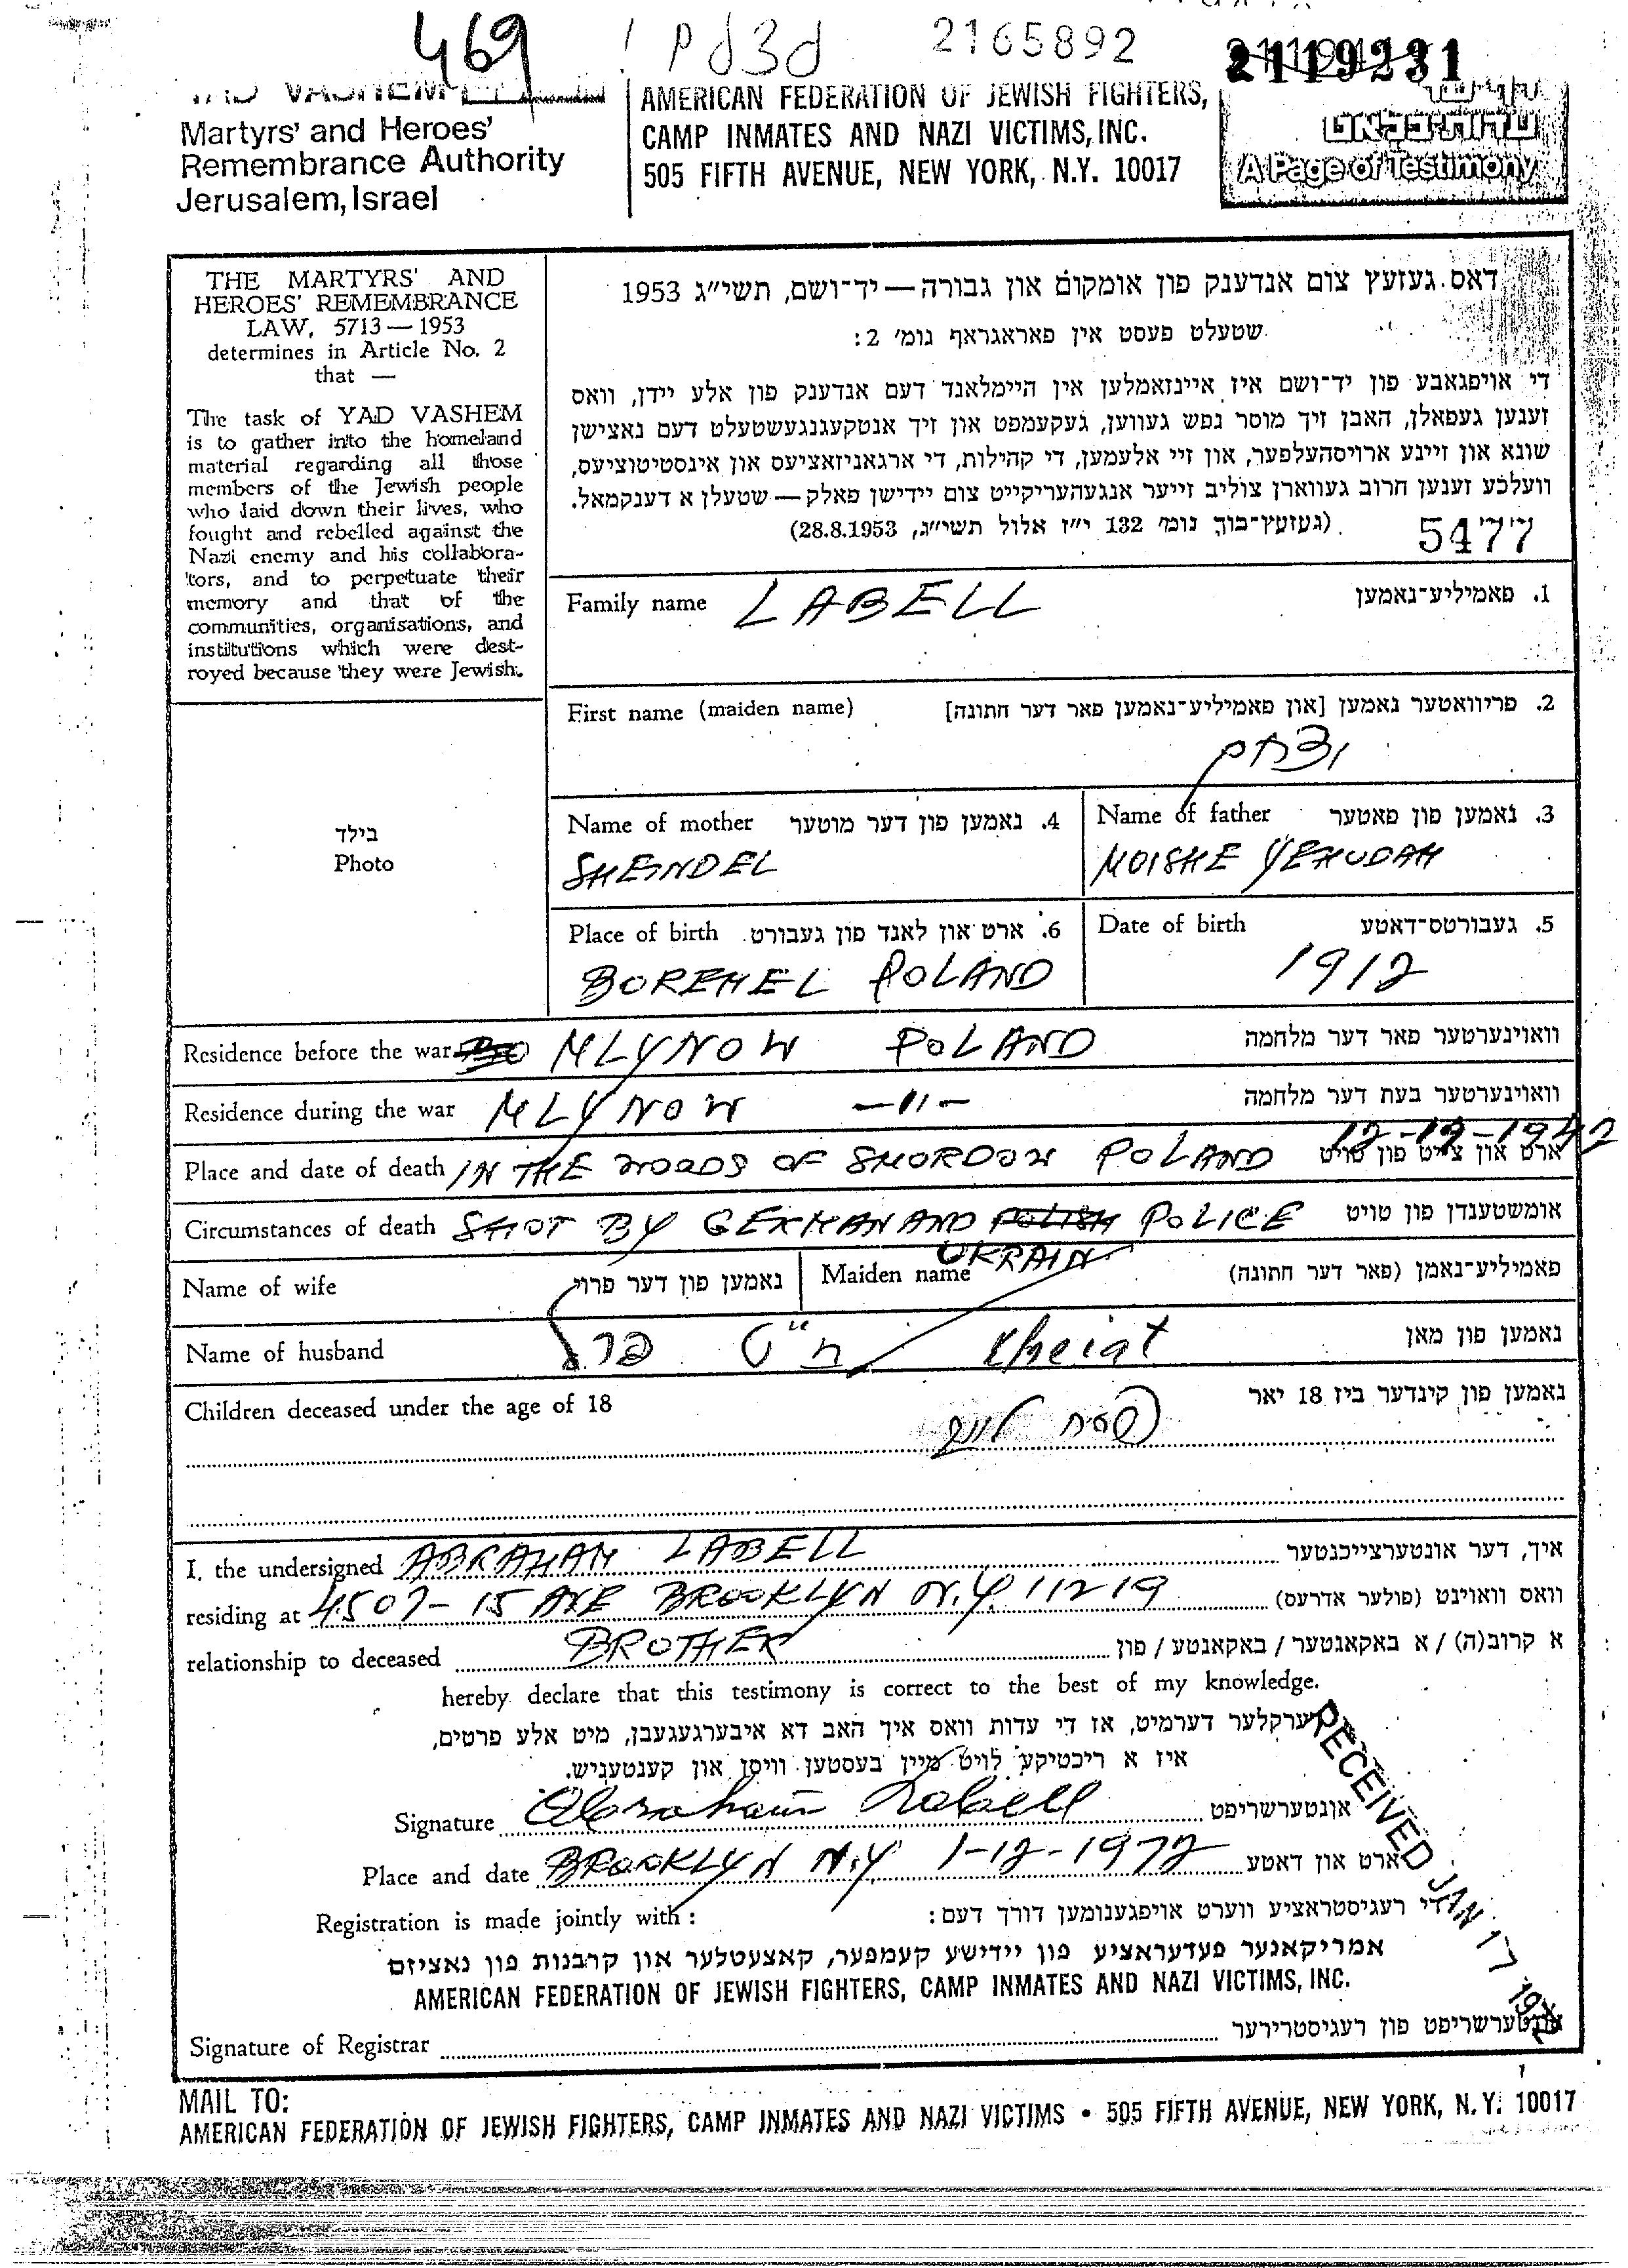 469 ! 2165892 2119231
YAD VASHEM
Martyrs' and Heroes'
Remembrance Authority
Jerusalem, Israel
AMERICAN FEDERATION OF JEWISH FIGHTERS,
CAMP INMATES AND NAZI VICTIMS, INC.
505 FIFTH AVENUE, NEW YORK, N.Y. 10017
A Page of Testimony
THE MARTYRS' AND
HEROES' REMEMBRANCE
LAW, 5713 — 1953
determines in Article No. 2
that —
The task of YAD VASHEM
is to gather into the homeland
material regarding all those
members of the Jewish people
who laid down their lives, who
fought and rebelled against the
Nazi enemy and his collabora-
tors, and to perpetuate their
memory and that of the
communities, organisations, and
institutions which were dest-
royed because they were Jewish.
דאס געזעץ צום אנדענק פון אומקום און גבורה — יד־ושם, תשי״ג 1953
שטעלט פעסט אין פאראגראף נומ׳ 2:
די אויפגאבע פון יד־ושם איז איינזאמלען אין היימלאנד דעם אנדענק פון אלע יידן, וואס
זענען געפאלן, האבן זיך מוסר נפש געווען, געקעמפט און זיך אנטקעגנגעשטעלט דעם נאצישן
שונא און זיינע ארויסהעלפער, און זיי אלעמען, די קהילות, די ארגאניזאציעס און אינסטיטוציעס,
וועלכע זענען חרוב געווארן צוליב זייער אנגעהעריקייט צום יידישן פאלק — שטעלן א דענקמאל.
(געזעץ־בוך נומ׳ 132 י״ז אלול תשי״ג, 28.8.1953)
5477
Family name LABELL 1. פאמיליע־נאמען
First name (maiden name) 2. פריוואטער נאמען [און פאמיליע־נאמען פאר דער חתונה]
בילד
Photo
Name of mother 4. נאמען פון דער מוטער
SHEINDEL
Name of father 3. נאמען פון פאטער
MOISHE YEHUDAH
Place of birth 6. ארט און לאנד פון געבורט
BOREMEL POLAND
Date of birth 5. געבורטס־דאטע
1912
Residence before the war MLYNOW POLAND וואוינערטער פאר דער מלחמה
Residence during the war MLYNOW —11— וואוינערטער בעת דער מלחמה
12-12-1942
Place and date of death IN THE WOODS OF SMORDOW POLAND ארט און צייט פון טויט
Circumstances of death SHOT BY GERMAN AND POLISH POLICE אומשטענדן פון טויט
UKRAIN
Name of wife נאמען פון דער פרוי Maiden name פאמיליע־נאמן (פאר דער חתונה)
Name of husband Kheiat נאמען פון מאן
Children deceased under the age of 18 נאמען פון קינדער ביז 18 יאר
I, the undersigned ABRAHAM LABELL איך, דער אונטערצייכנטער
residing at 4507 - 15 AVE BROOKLYN N.Y. 11219 וואס וואוינט (פולער אדרעס)
relationship to deceased BROTHER א קרוב(ה) / א באקאנטער / באקאנטע / פון
hereby declare that this testimony is correct to the best of my knowledge.
ערקלער דערמיט, אז די עדות וואס איך האב דא איבערגעגעבן, מיט אלע פרטים,
איז א ריכטיקע לויט מיין בעסטען וויסן און קענטעניש.
Signature Abraham Labell אונטערשריפט
Place and date BROOKLYN N.Y 1-12-1972 ארט און דאטע
RECEIVED JAN 17 1972
Registration is made jointly with: די רעגיסטראציע ווערט אויפגענומען דורך דעם:
אמריקאנער פעדעראציע פון יידישע קעמפער, קאצעטלער און קרבנות פון נאציזם
AMERICAN FEDERATION OF JEWISH FIGHTERS, CAMP INMATES AND NAZI VICTIMS, INC.
Signature of Registrar אונטערשריפט פון רעגיסטרירער
MAIL TO:
AMERICAN FEDERATION OF JEWISH FIGHTERS, CAMP INMATES AND NAZI VICTIMS • 505 FIFTH AVENUE, NEW YORK, N.Y. 10017